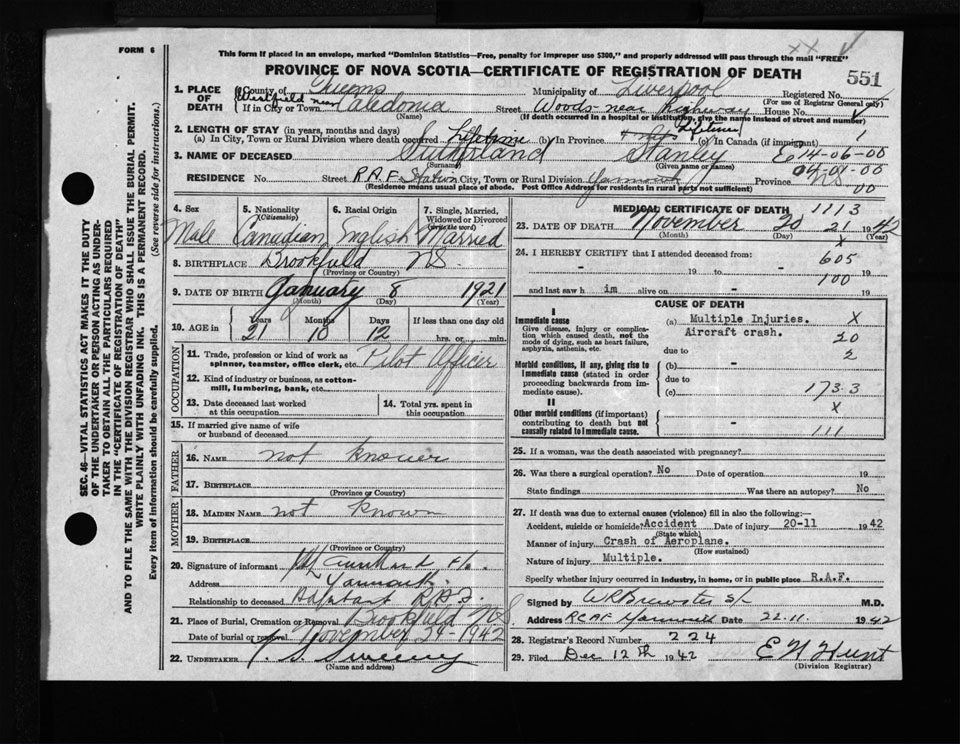 FORM 6
This form if placed in an envelope, marked "Dominion Statistics—Free, penalty for improper use $300," and properly addressed will pass through the mail "FREE"
PROVINCE OF NOVA SCOTIA—CERTIFICATE OF REGISTRATION OF DEATH
551
1. PLACE OF DEATH
County of Queens Municipality of Liverpool Registered No.
(For use of Registrar General only)
Westfield near
If in City or Town Caledonia Street Woods near highway House No.
(Name) (If death occurred in a hospital or institution, give the name instead of street and number)
2. LENGTH OF STAY (in years, months and days)
(a) In City, Town or Rural Division where death occurred Lifetime (b) in Province Lifetime (c) In Canada (if immigrant)
3. NAME OF DECEASED Sutherland Stanley 14-06-00
(Surname) (Given name or names) 04-01-00
RESIDENCE No. Street R.A.F. Station City, Town or Rural Division Yarmouth Province NS 00
(Residence means usual place of abode. Post Office Address for residents in rural parts not sufficient)
4. Sex Male
5. Nationality (Citizenship) Canadian
6. Racial Origin English
7. Single, Married, Widowed or Divorced (write the word) Married
8. BIRTHPLACE Brookfield NS
(Province or Country)
9. DATE OF BIRTH January 8 1921
(Month) (Day) (Year)
10. AGE in Years 21 Months 10 Days 12 If less than one day old hrs. or min.
OCCUPATION
11. Trade, profession or kind of work as spinner, teamster, office clerk, etc. Pilot Officer
12. Kind of industry or business, as cotton-mill, lumbering, bank, etc.
13. Date deceased last worked at this occupation
14. Total yrs. spent in this occupation
15. If married give name of wife or husband of deceased
FATHER
16. NAME not known
17. BIRTHPLACE
(Province or Country)
MOTHER
18. MAIDEN NAME not known
19. BIRTHPLACE
(Province or Country)
20. Signature of informant
Address Yarmouth
Relationship to deceased Adjutant R.A.F.
21. Place of Burial, Cremation or Removal Brookfield NS
Date of burial or removal November 24-1942
22. UNDERTAKER Sweeny
(Name and address)
MEDICAL CERTIFICATE OF DEATH 1113
23. DATE OF DEATH November 20 21 1942
(Month) (Day) (Year)
24. I HEREBY CERTIFY that I attended deceased from: X
605
- 19 to - 19
100
and last saw h im alive on - 19
CAUSE OF DEATH
I
Immediate cause
Give disease, injury or complication which caused death, not the mode of dying, such as heart failure, asphyxia, asthenia, etc.
(a) Multiple Injuries. X
Aircraft crash. 20
due to 2
Morbid conditions, if any, giving rise to immediate cause (stated in order proceeding backwards from immediate cause).
(b) -
due to
(c) - 1733
II
X
Other morbid conditions (if important) contributing to death but not causally related to immediate cause. -
111
25. If a woman, was the death associated with pregnancy?
26. Was there a surgical operation? No Date of operation 19
State findings Was there an autopsy? No
27. If death was due to external causes (violence) fill in also the following:—
Accident, suicide or homicide? Accident Date of injury 20-11 1942
(State which)
Manner of injury Crash of Aeroplane.
(How sustained)
Nature of injury Multiple.
Specify whether injury occurred in industry, in home, or in public place R.A.F.
Signed by W R Brewster S/L M.D.
Address RCAF Yarmouth Date 22-11 1942
28. Registrar's Record Number 224
29. Filed Dec 12th 1942 E N Hunt
(Division Registrar)
SEC. 46—VITAL STATISTICS ACT MAKES IT THE DUTY
OF THE UNDERTAKER OR PERSON ACTING AS UNDER-
TAKER TO OBTAIN ALL THE PARTICULARS REQUIRED
IN THE "CERTIFICATE OF REGISTRATION OF DEATH"
AND TO FILE THE SAME WITH THE DIVISION REGISTRAR WHO SHALL ISSUE THE BURIAL PERMIT.
WRITE PLAINLY WITH UNFADING INK. THIS IS A PERMANENT RECORD.
Every item of information should be carefully supplied. (See reverse side for instructions.)